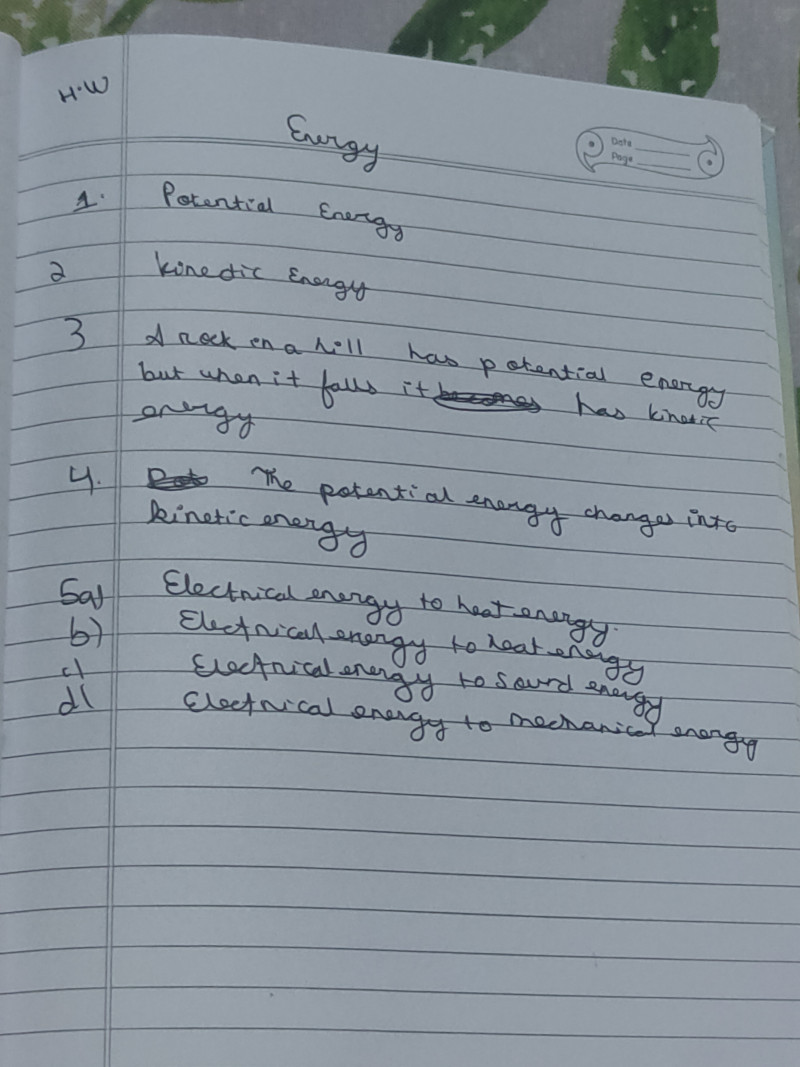 H.W
Energy
Date
Page
1. Potential Energy
2 Kinetic Energy
3 A rock on a hill has potential energy
but when it falls it becomes has kinetic
energy
4. The potential energy changes into
kinetic energy
5a) Electrical energy to heat energy.
b) Electrical energy to heat energy
c) Electrical energy to sound energy
d) Electrical energy to mechanical energy